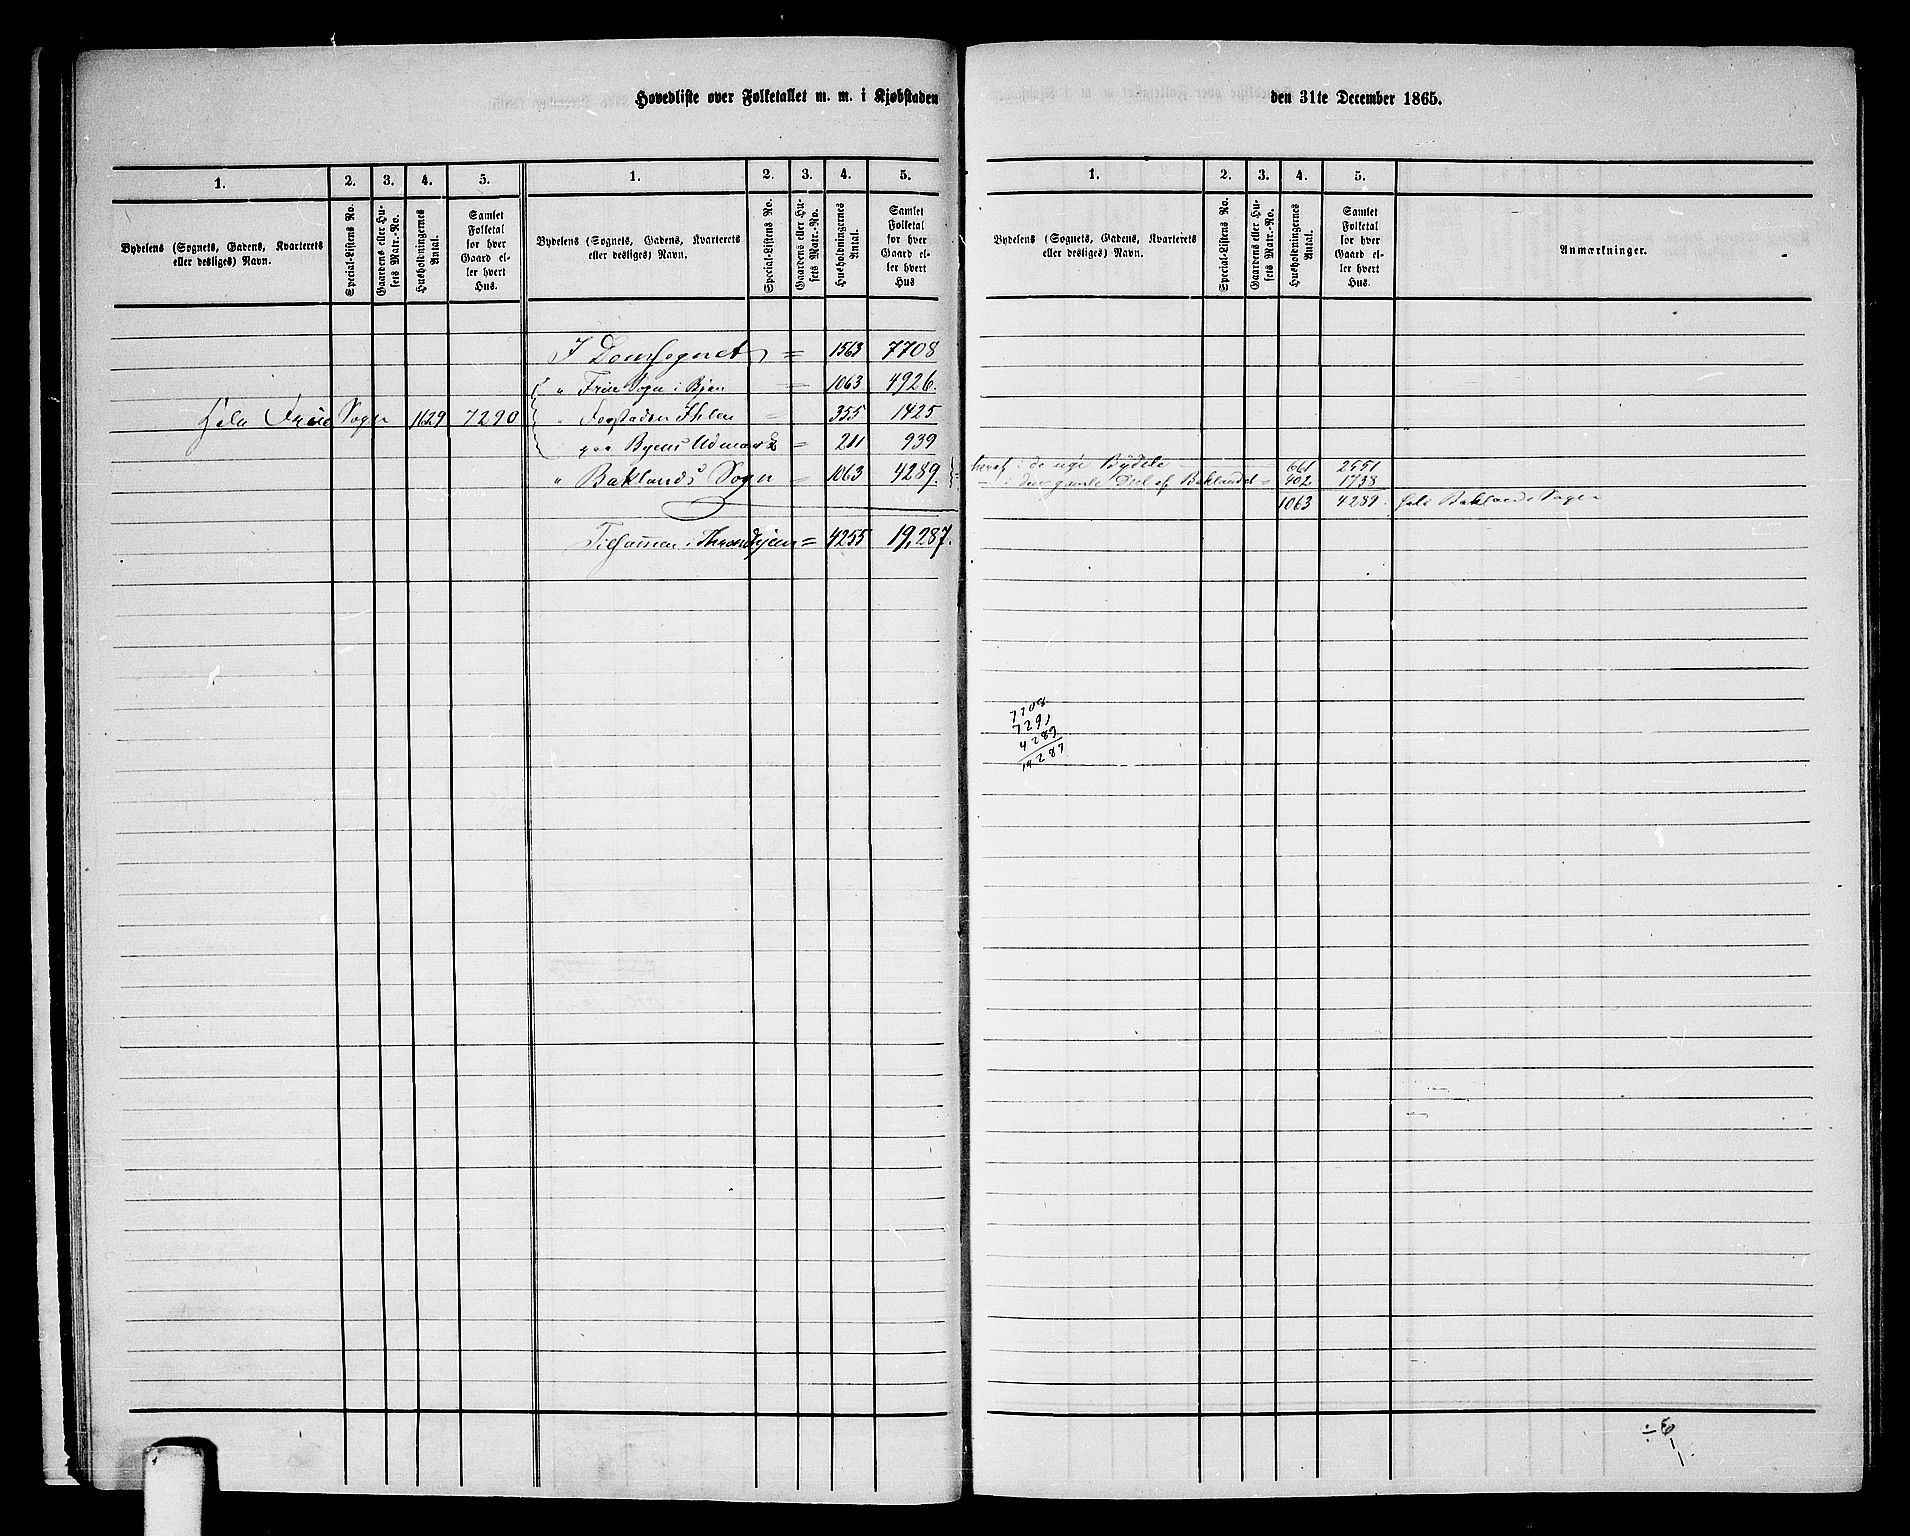 Hovedliste over Folketallet m. m. i Kjøbstaden den 31te December 1865.
1. 2. 3. 4. 5. 1. 2. 3. 4. 5.
Bydelens (Sognets, Gadens, Kvarterets eller desliges) Navn.
Special-Listens No.
Gaardens eller Husets Matr.-No.
Husholdningernes Antal.
Samlet Folketal for hver Gaard eller hvert Hus.
Bydelens (Sognets, Gadens, Kvarterets eller desliges) Navn.
Special-Listens No.
Gaardens eller Husets Matr.-No.
Husholdningernes Antal.
Samlet Folketal for hver Gaard eller hvert Hus
I Domsognet = 1563 7708
" Frue Sogn i Byen = 1063 4926.
Hele Frue Sogn 1629 7290
" Forstaden Ihlen = 355 1425
" paa Byens Udmark = 211 939
" Baklands Sogn = 1063 4289.
Tilsammen i Throndhjem = 4255 19,287.
1. 2. 3. 4. 5.
Bydelens (Sognets, Gadens, Kvarterets eller desliges) Navn.
Special-Listens No.
Gaardens eller Husets Matr.-No.
Husholdningernes Antal.
Samlet Folketal for hver Gaard eller hvert Hus.
Anmærkninger.
heraf i de nye Bydele 661 2551
– i den gamle Deel af Baklandet = 402 1738
1063 4289. hele Baklands Sogn
7708
7291
4289
19287
÷6